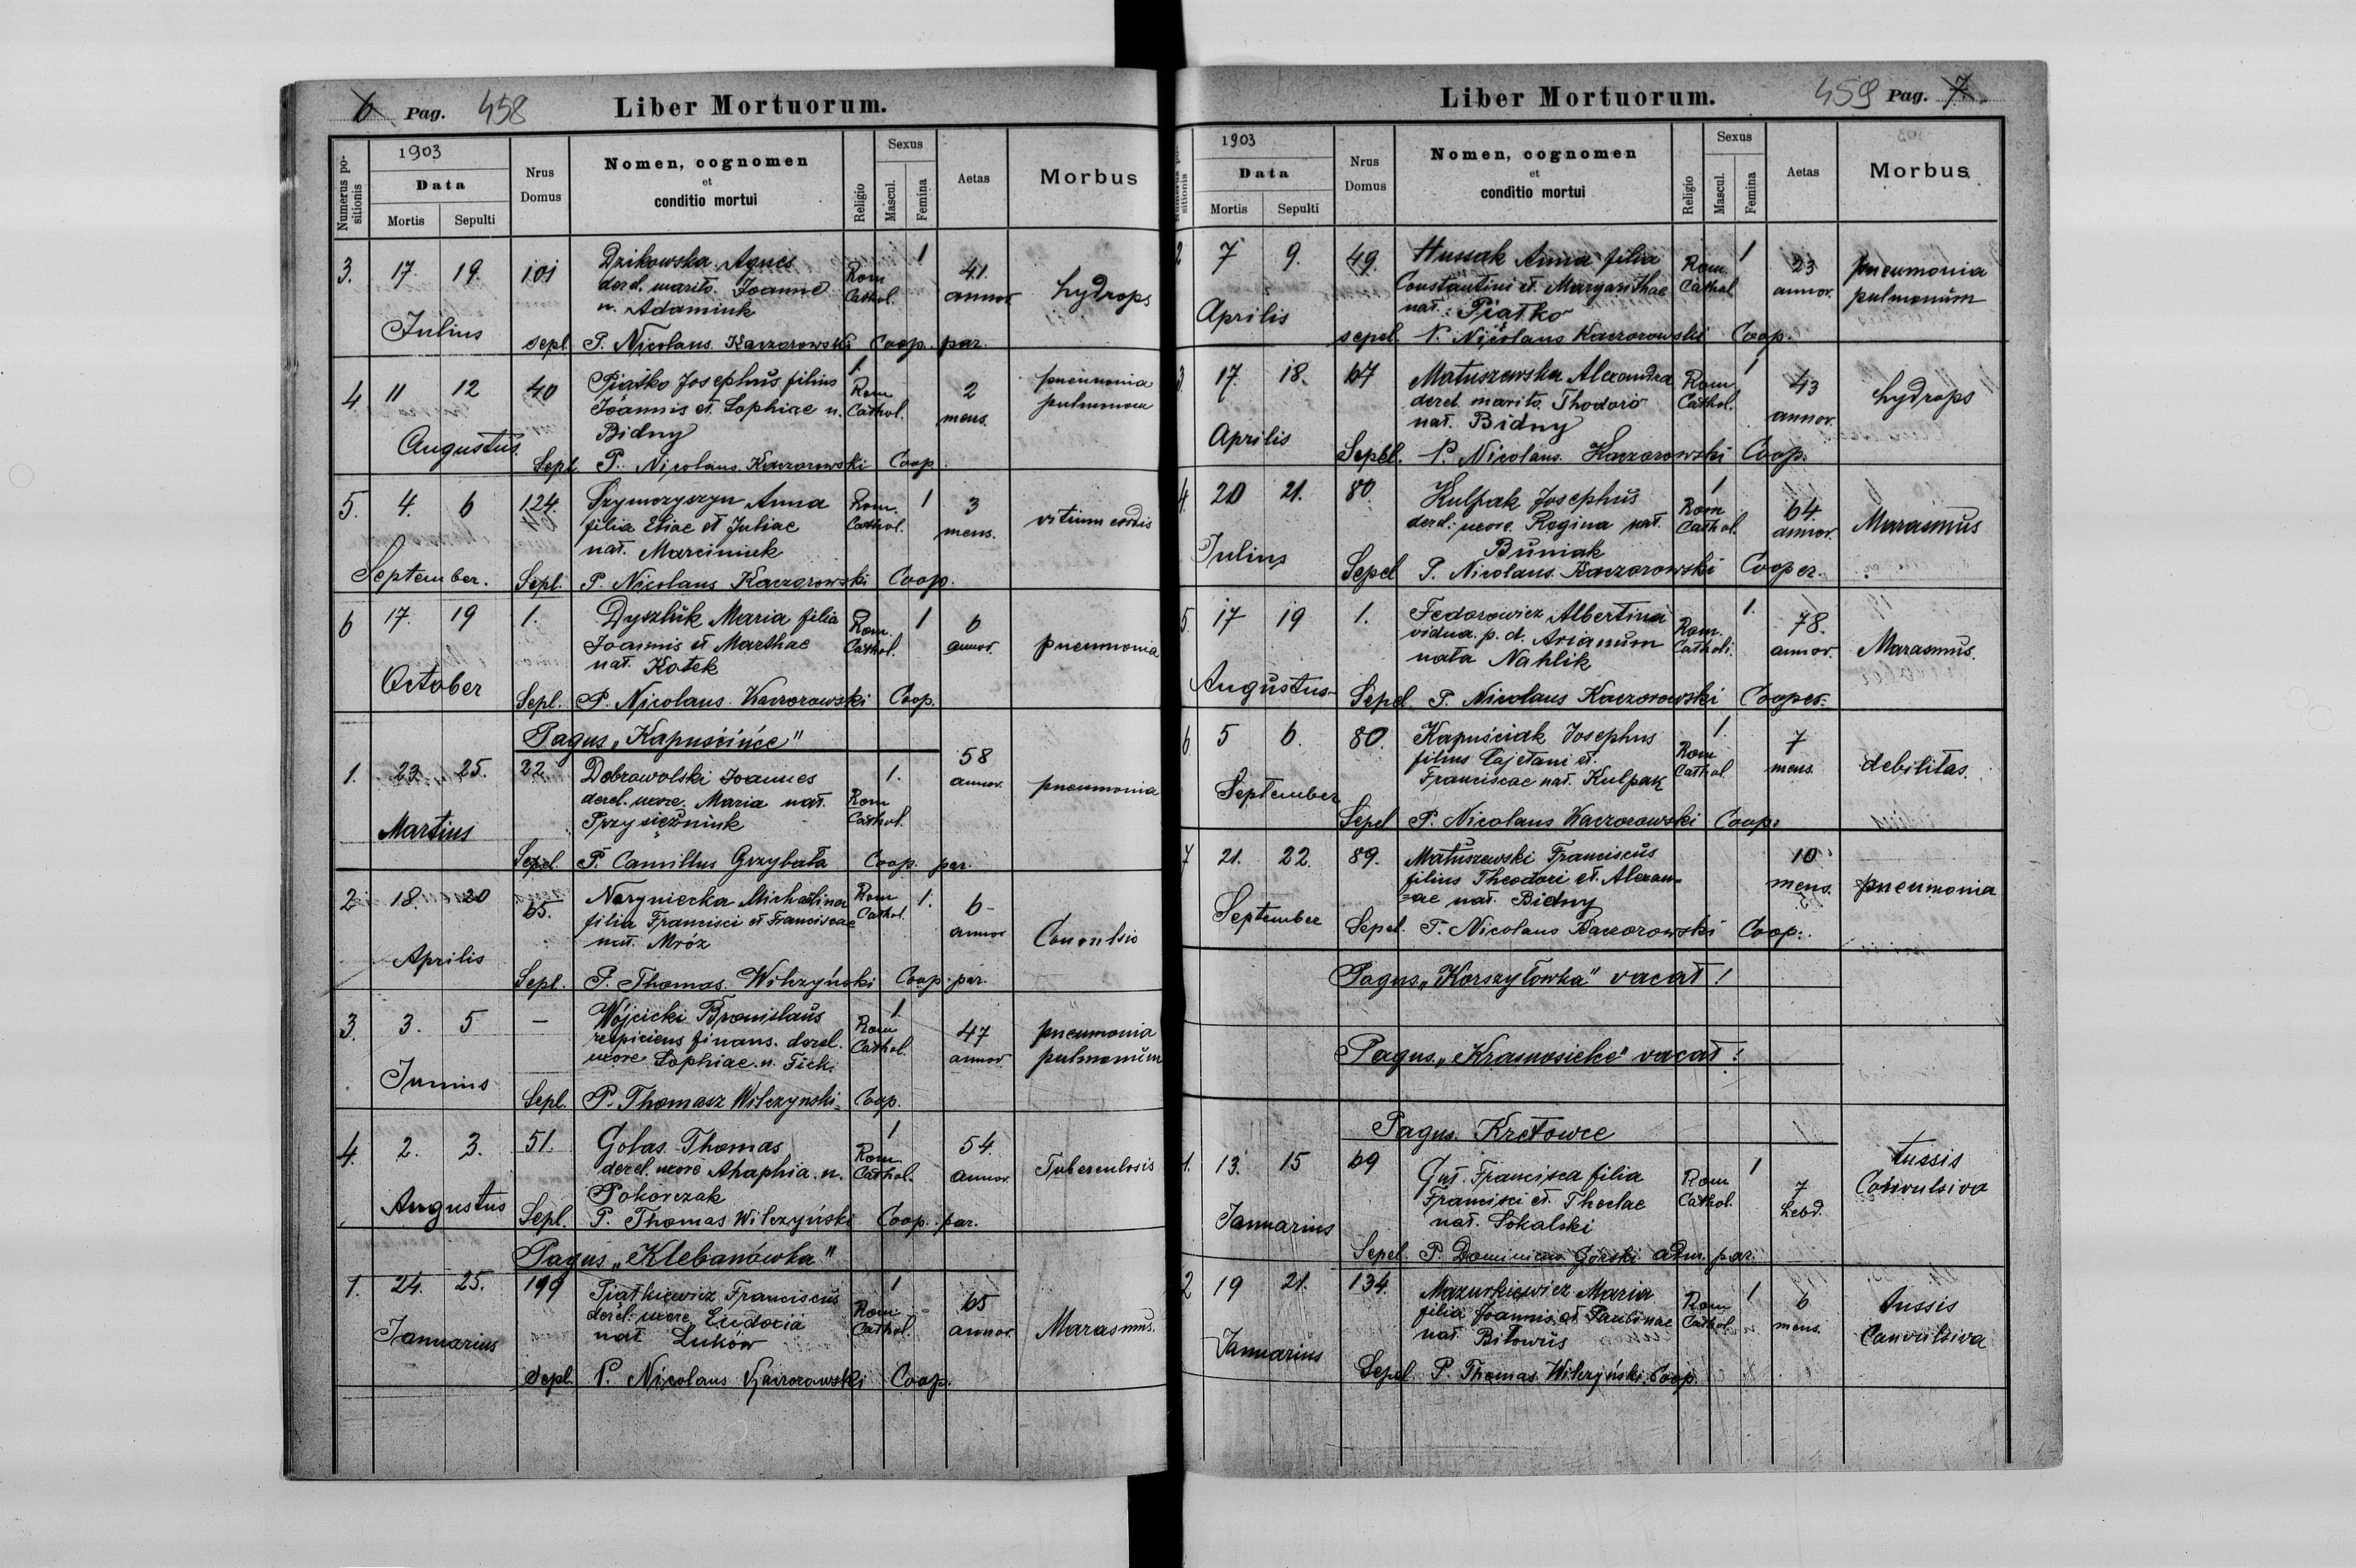 6 Pag. 458 Liber Mortuorum.
Numerus positionis 1903 Data Mortis Sepulti Nrus Domus Nomen, cognomen et conditio mortui Religio Sexus Mascul. Femina Aetas Morbus
3. 17. 19. 101 Dzikowska Agnes Rom. Cathol. 1 41. annor. hydrops
derel. marito. Joanne
n. Adamiuk
Julius sepl. P. Nicolaus Kaczorowski Coop. par.
4 11 12 40 Piątko Josephus filius Rom. Cathol. 1. 2 mens. pneumonia pulmonum
Joannis et Sophiae n.
Bidny
Augustus. Sepl. P. Nicolaus Kaczorowski Coop.
5. 4. 6 124. Szymczyszyn Anna Rom. Cathol. 1 3 mens. vitium cordis
filia Eliae et Juliae
nat. Marciniuk
September. Sepl. P. Nicolaus Kaczorowski Coop.
6 17. 19 1. Dyszluk Maria filia Rom. Cathol. 1 6 annor. pneumonia
Joannis et Marthae
nat. Kotek
October Sepl. P. Nicolaus Kaczorowski Coop.
Pagus „Kapuścińce"
1. 23. 25. 22 Dobrowolski Joannes Rom Cathol. 1. 58 annor. pneumonia
derel. uxore. Maria nat.
Przysiężniuk
Martius Sepel. P. Camillus Grzybała Coop. par.
2 18. 20 65. Naryniecka Michalina Rom Cathol. 1. 6 annor Convulsio
filia Francisci et Franciscae
nat. Mróz
Aprilis Sepl. P. Thomas Wilczyński Coop. par.
3. 3. 5 — Wójcicki Bronislaus Rom Cathol. 1. 47 annor pneumonia pulmonum
respiciens finans. derel.
uxore Sophiae n. Fich.
Junius Sepl. P. Thomasz Wilczynski Coop.
4. 2. 3. 51. Golas Thomas Rom. Cathol. 1 54. annor. Tuberculosis
derel. uxore Ahaphia n.
Pokorczak
Augustus Sepl. P. Thomas Wilczyński Coop. par.
Pagus „Klebanówka"
1. 24. 25. 199 Piątkiewicz Franciscus Rom Cathol. 1 65 annor. Marasmus.
derel. uxore Eudoxia
nat. Łuków
Januarius Sepl. P. Nicolaus Kaczorowski Coop.
Liber Mortuorum. 459 Pag. 7
Numerus positionis 1903 Data Mortis Sepulti Nrus Domus Nomen, cognomen et conditio mortui Religio Sexus Mascul. Femina Aetas Morbus
2 7 9. 49. Hussak Anna filia Rom Cathol 1 23 annor. pneumonia pulmonum
Constantini et Margarithae
nat. Piątko
Aprilis sepel. P. Nicolaus Kaczorowski Coop.
3. 17. 18. 67 Matuszewska Alexandra Rom Cathol. 1 43 annor. hydrops
derel. marito Thodoro
nat. Bidny
Aprilis Sepel. P. Nicolaus Kaczorowski Coop.
4. 20 21. 80. Kulpak Josephus Rom Cathol. 1 64. annor. Marasmus
derel. uxore. Regina nat.
Buniak
Julius Sepel P. Nicolaus Kaczorowski Cooper.
5. 17 19 1. Fedorowicz Albertina Rom. Catholi. 1. 78. annor. Marasmus.
vidua. p. d. Arianum
nata Nahlik
Augustus Sepel. P. Nicolaus Kaczorowski Cooper.
6 5 6. 80. Kapuściak Josephus Rom Cathol. 1. 7 mens. debilitas.
filius Cajetani et
Franciscae nat. Kulpak
September Sepel P. Nicolaus Kaczorowski Coop.
7 21. 22. 89. Matuszewski Franciscus 10 mens. pneumonia
filius Theodori et Alexan=
=ae nat. Bidny
September Sepel. P. Nicolaus Kaczorowski Coop.
Pagus „Korszyłowka" vacat!
Pagus „Krasnosielce" vacat!
Pagus. Kretowce
1. 13. 15 69 Gut. Francisca filia Rom Cathol. 1 7 hebd. tussis Convulsiva
Francisci et Theclae
nat. Sokalski
Januarius Sepel. P. Dominicus Górski adm. par.
2 19 21. 134. Mazurkiewicz Maria Rom Cathol. 1 6 mens. tussis Convulsiva
filia Joannis et Paulinae
nat. Biłowus
Januarius Sepel P. Thomas Wilczyński. Coop.